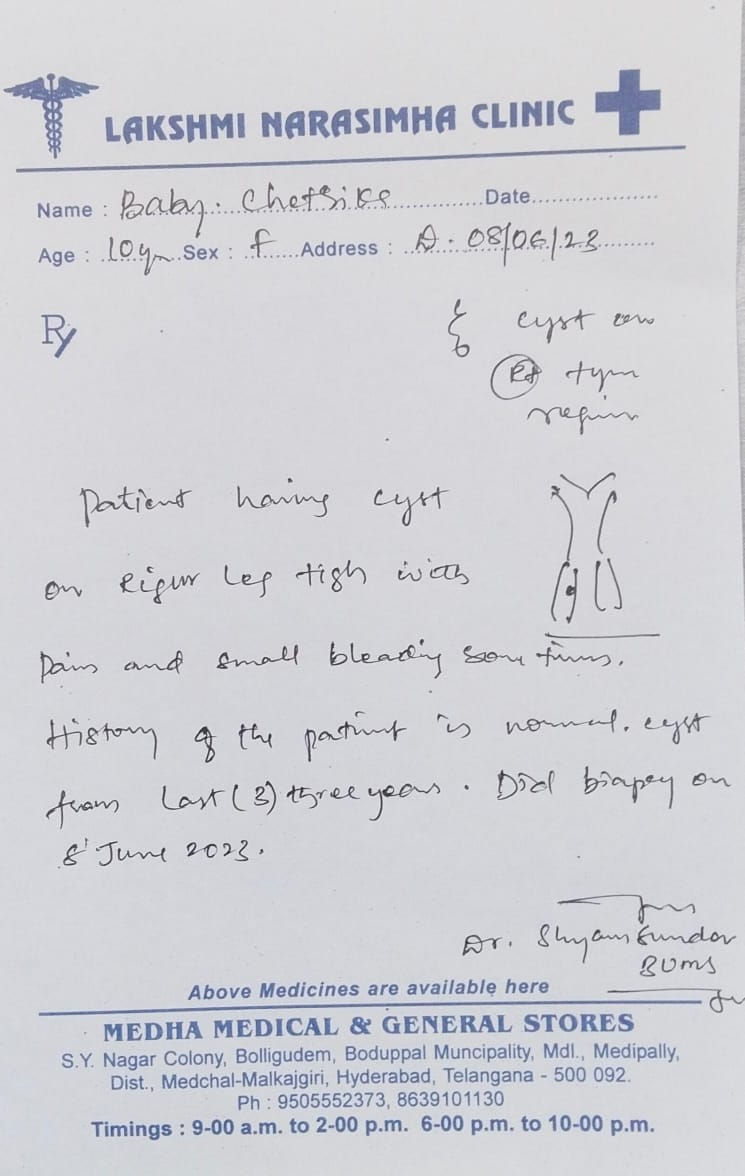 LAKSHMI NARASIMHA CLINIC
Name : Baby. Date
Age : 10y Sex : f Address : D. 08/06/23
Rx
cyst on
Rt
Patient having cyst
on Leg tigh with
Pain and small bleading some times.
History of the patient is normal. cyst
from Last (3) three years. Did biapsy on
8' June 2023.
Dr. Shyam Sundar
BUMS
Above Medicines are available here
MEDHA MEDICAL & GENERAL STORES
S.Y. Nagar Colony, Bolligudem, Boduppal Muncipality, Mdl., Medipally,
Dist., Medchal-Malkajgiri, Hyderabad, Telangana - 500 092.
Ph : 9505552373, 8639101130
Timings : 9-00 a.m. to 2-00 p.m. 6-00 p.m. to 10-00 p.m.